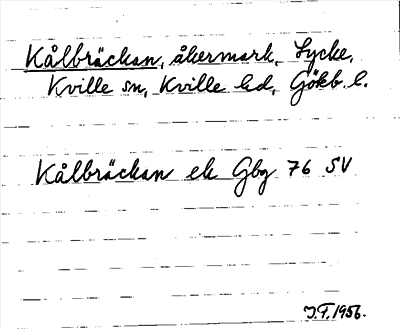 Kålbräckan, åkermark, Lycke,
Kville sn, Kville hd, Gökb. l.
Kålbräckan ek Gbg 76 SV
J.F. 1956.